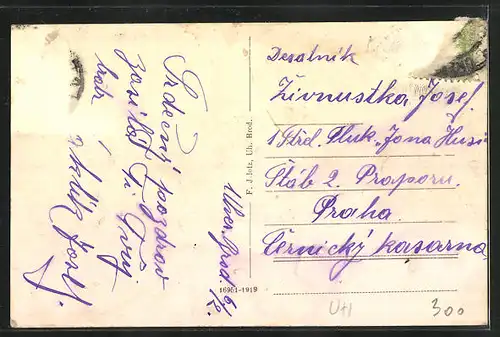 Srdečný pozdrav
zasílá Ti Tvůj
Josef.
Uher. Brod.
F. J. Jelz, Uh. Brod.
16951-1919
Desatník
Živnustka Josef.
1 Střel. Pluk „Jana Husi
Štáb 2. Praporu.
Praha
Černický kasarna
300